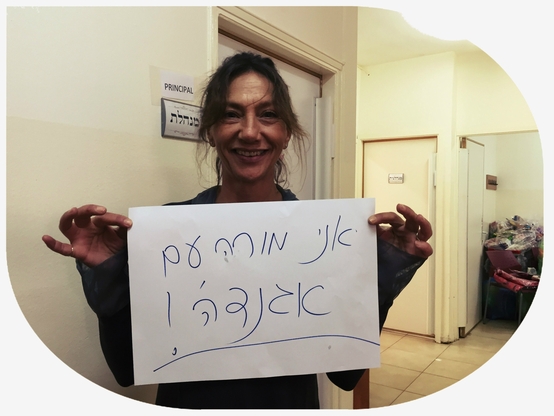 PRINCIPAL
מנהלת
אני מורה עם
אג'נדה !